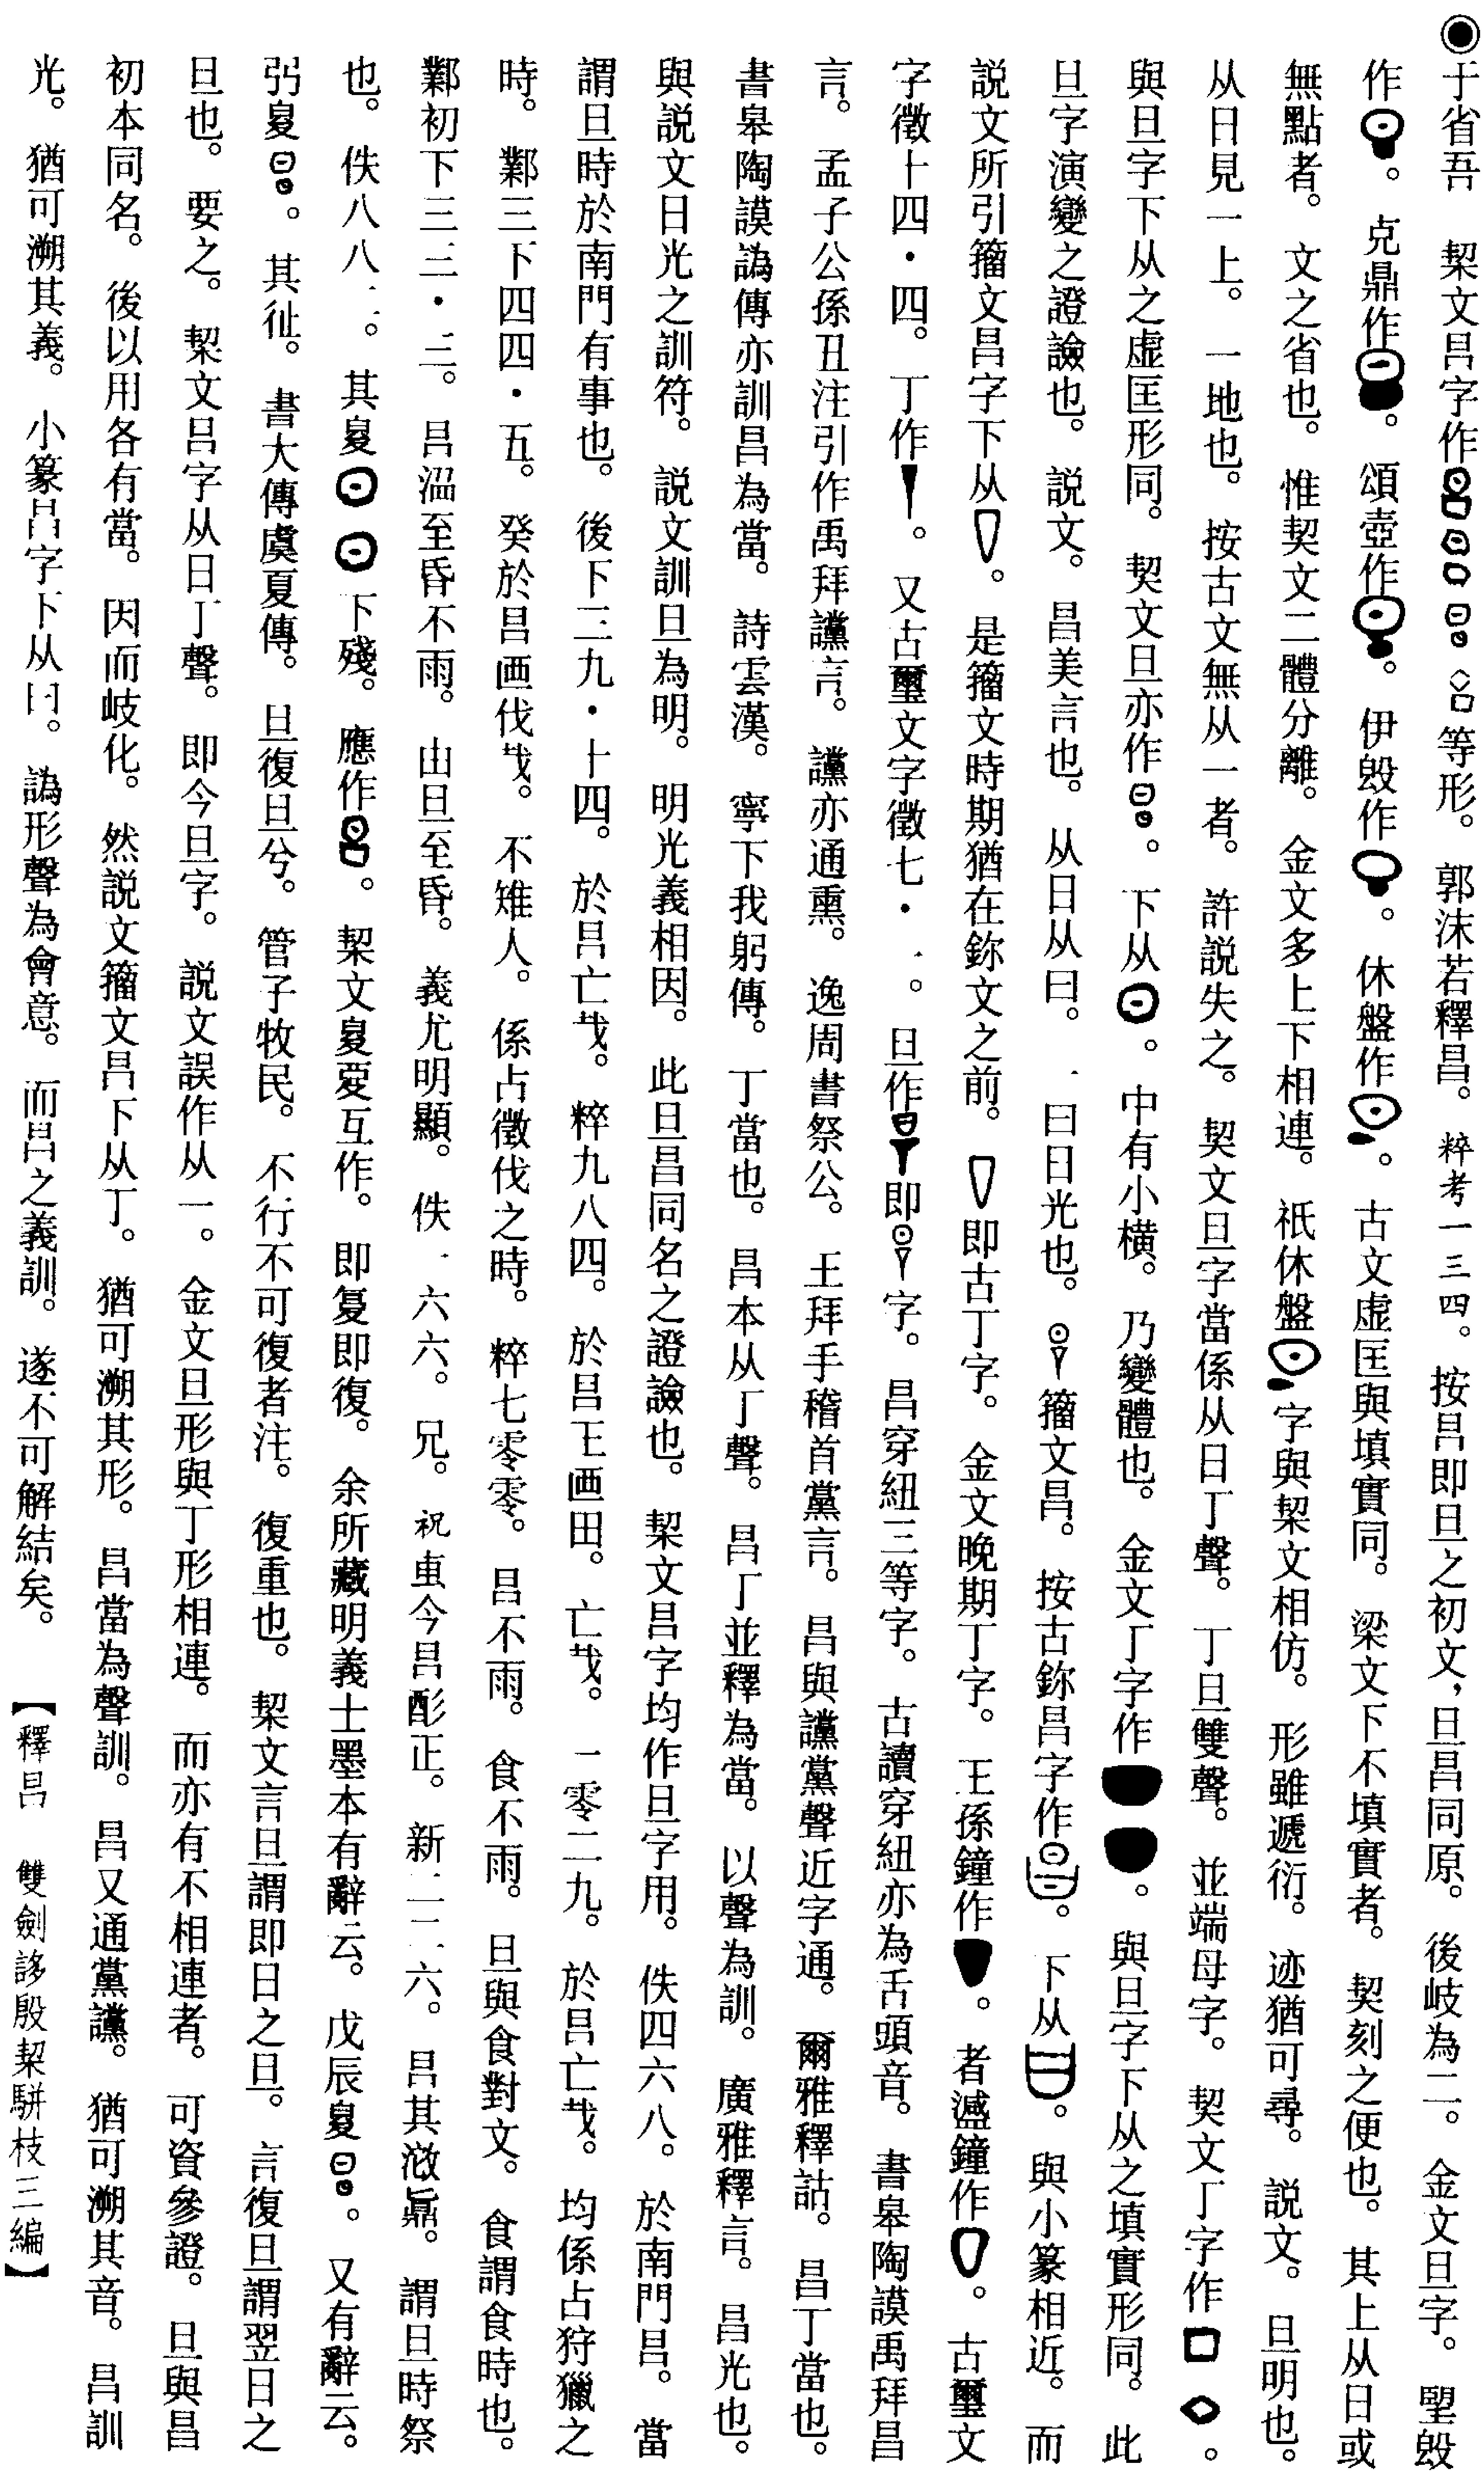 ◉于省吾　契文昌字作等形。郭沫若釋昌。粹考一三四。按昌即旦之初文，旦昌同原。後歧為二。金文旦字。 𣪘
作。克鼎作。頌壺作。伊𣪘作。休盤作。古文虛匡與填實同。梁文下不填實者。契刻之便也。其上从日或
無點者。文之省也。惟契文二體分離。金文多上下相連。祇休盤字與契文相仿。形雖遞衍。迹猶可尋。說文。旦明也。
从日見一上。一地也。按古文無从一者。許說失之。契文旦字當係从日丁聲。丁旦雙聲。並端母字。契文丁字作囗◇。
與旦字下从之虛匡形同。契文旦亦作。下从。中有小橫。乃變體也。金文丁字作。與旦字下从之填實形同。此
旦字演變之證譣也。說文。昌美言也。从日从曰。一曰日光也。籀文昌。按古鉨昌字作。下从。與小篆相近。而
說文所引籀文昌字下从。是籀文時期猶在鉨文之前。即古丁字。金文晚期丁字。王孫鐘作。者減鐘作。古璽文
字徵十四·四。丁作。又古璽文字徵七·一。旦作即字。昌穿紐三等字。古讀穿紐亦為舌頭音。書皋陶謨禹拜昌
言。孟子公孫丑注引作禹拜讜言。讜亦通黨。逸周書祭公。王拜手稽首黨言。昌與讜黨聲近字通。爾雅釋詁。昌丁當也。
書皋陶謨譌傳亦訓昌為當。詩雲漢。寧下我躬傳。丁當也。昌本从丁聲。昌丁並釋為當。以聲為訓。廣雅釋言。昌光也。
與說文日光之訓符。說文訓旦為明。明光義相因。此旦昌同名之證譣也。契文昌字均作旦字用。佚四六八。於南門昌。當
謂旦時於南門有事也。後下三九·十四。於昌亡𢦔。粹九八四。於昌王画田。亡𢦔。一零二九。於昌亡𢦔。均係占狩獵之
時。鄴三下四四·五。癸於昌画伐𢦔。不雉人。係占徵伐之時。粹七零零。昌不雨。食不雨。旦與食對文。食謂食時也。
鄴初下三三·三。昌湿至昏不雨。由旦至昏。義尤明顯。佚一六六。兄。祝叀今昌酌正。新二二六。昌其鼎。謂旦時祭
也。佚八八一。其夏下殘。應作。契文夏㚆互作。即复即復。余所藏明義士墨本有辭云。戊辰夏。又有辭云。
弜夏。其祉。書大傳虞夏傳。旦復旦兮。管子牧民。不行不可復者注。復重也。契文言旦謂即日之旦。言復旦謂翌日之
旦也。要之。契文昌字从日丁聲。即今旦字。說文誤作从一。金文旦形與丁形相連。而亦有不相連者。可資參證。旦與昌
初本同名。後以用各有當。因而歧化。然說文籀文昌下从丁。猶可溯其形。昌當為聲訓。昌又通黨讜。猶可溯其音。昌訓
光。猶可溯其義。小篆昌字下从曰。譌形聲為會意。而昌之義訓。遂不可解結矣。　【釋昌　雙劍誃殷契駢枝三編】